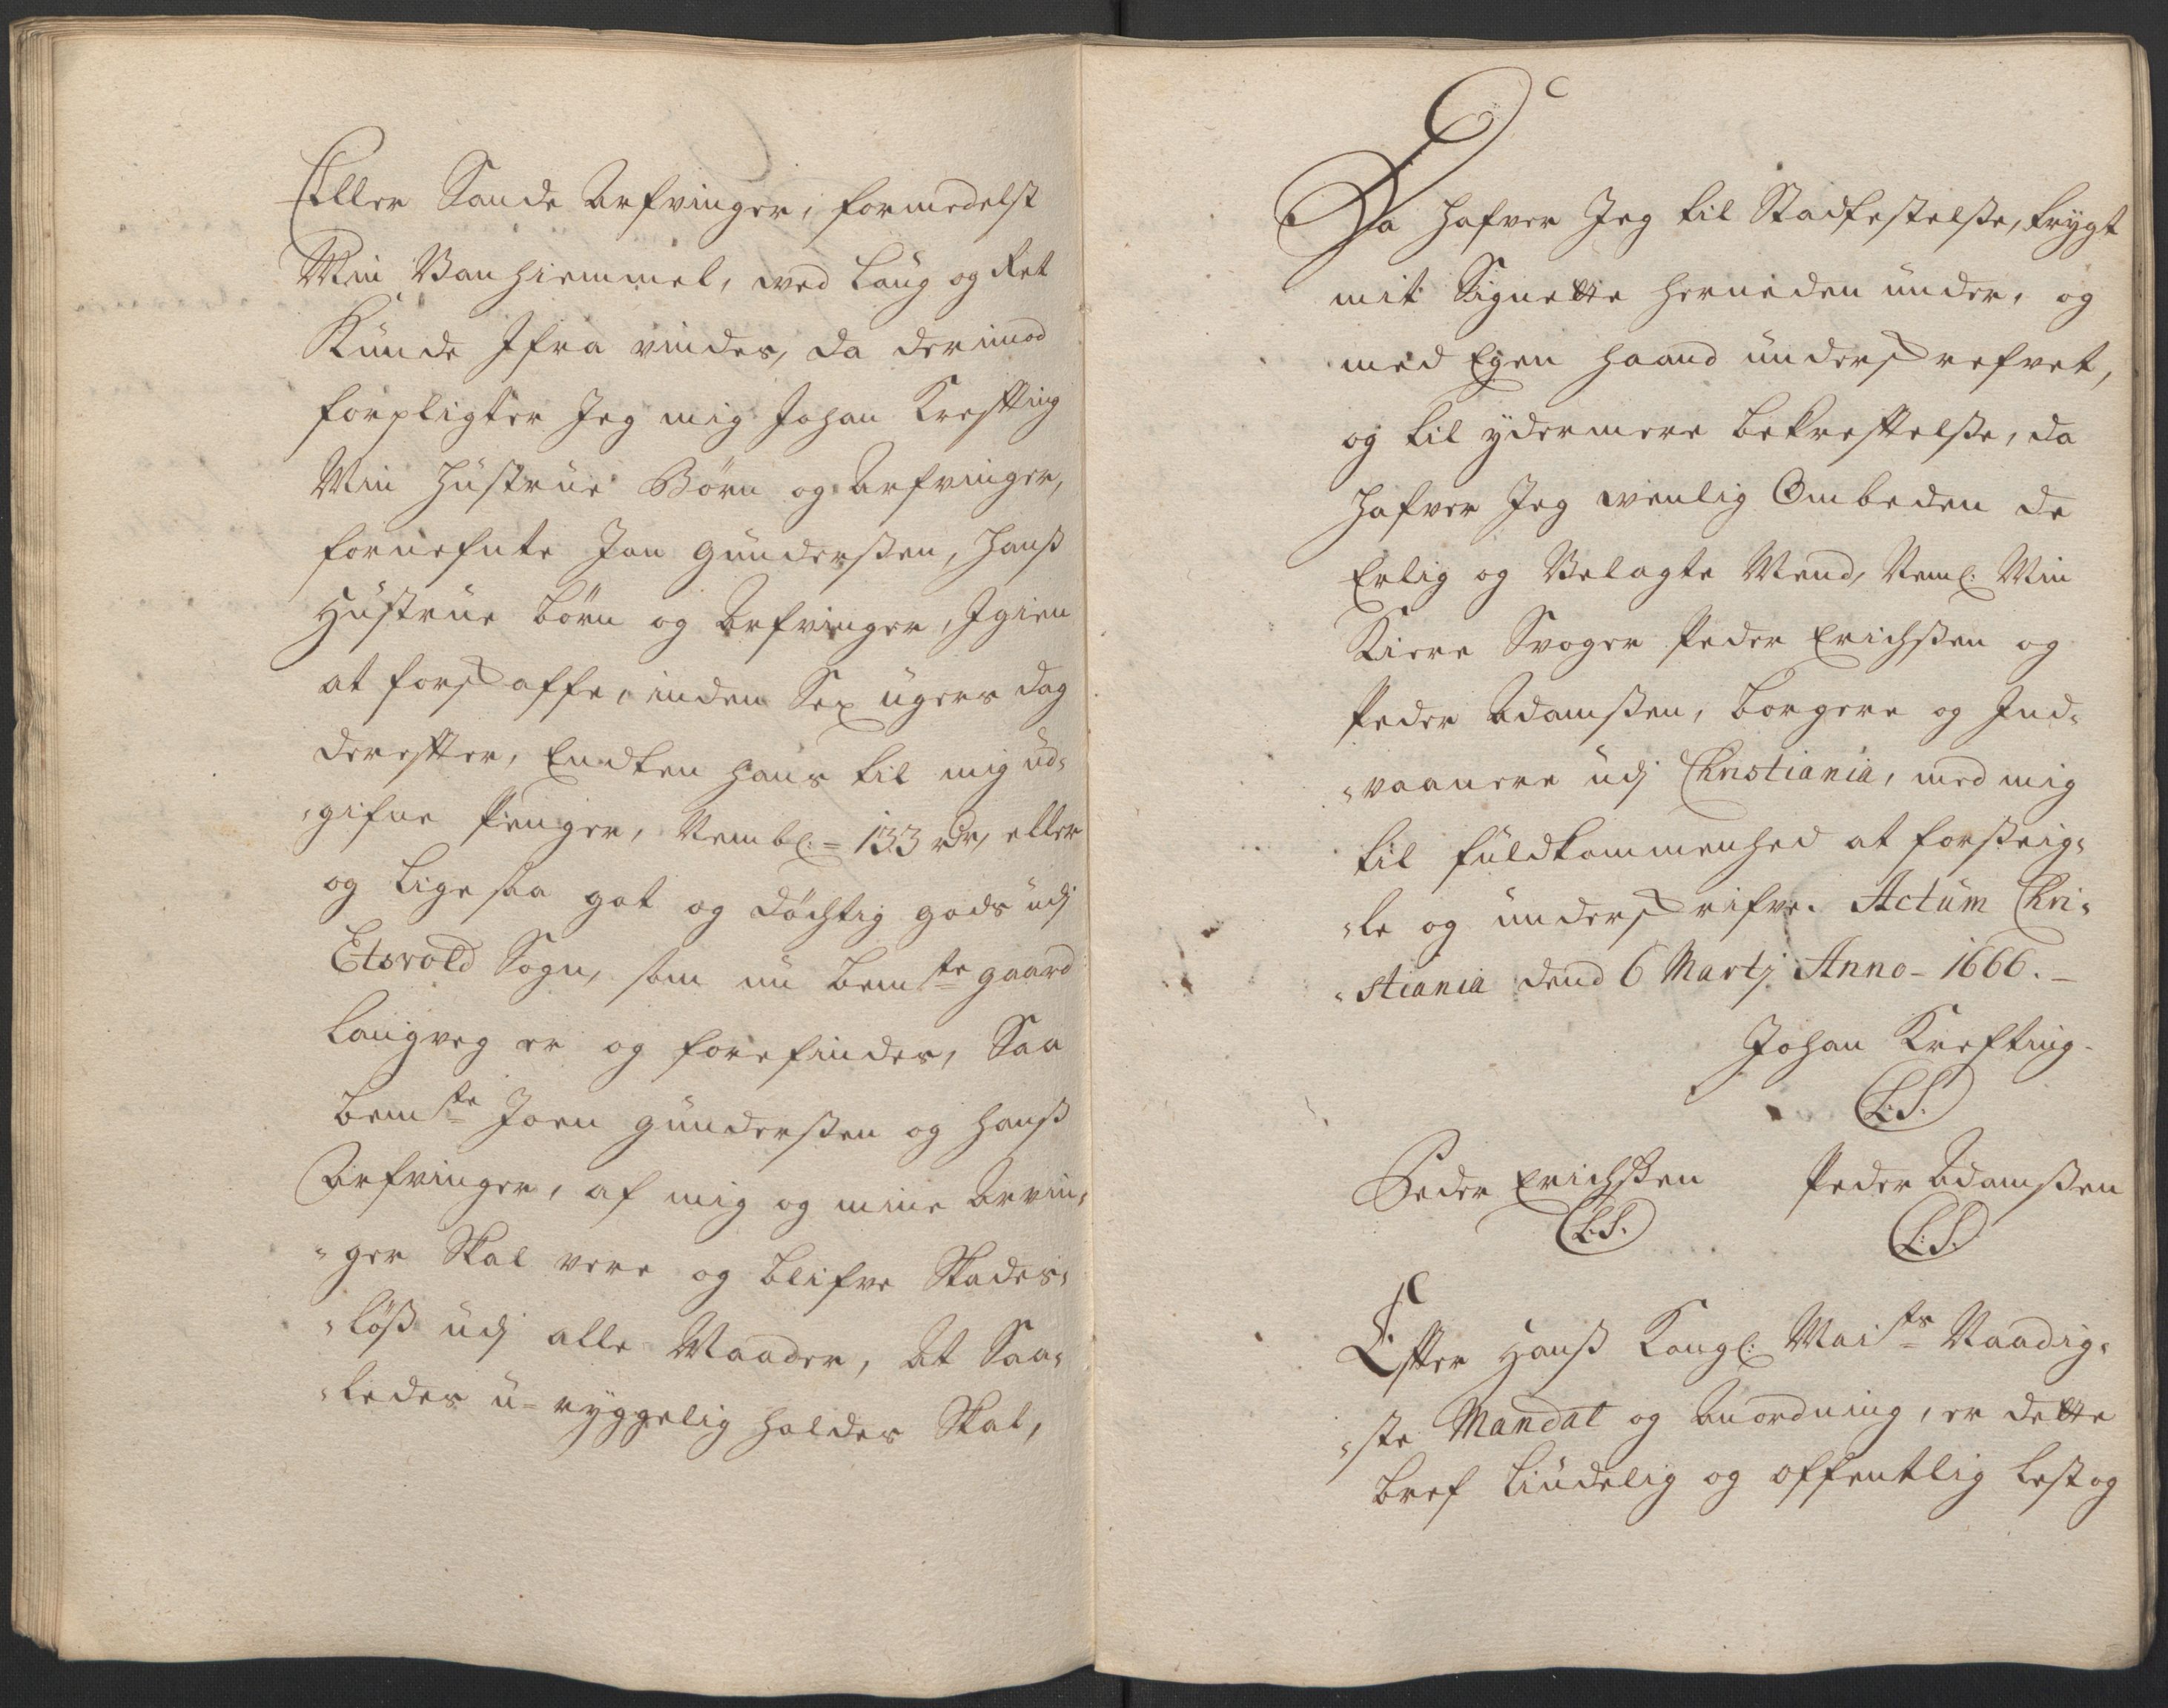 Eller Sande Arfvinger, formedelst
Min Vanhiemmel, ved Laug og Ret
Kunde Ifra vindes, da derimod
forpligter Jeg mig Johan Krefting
Min Hüstrüe Börn og Arfvinger,
fornefnte Jon Günderßen, Hanß
Hüstrüe börn og Arfvinger, Igien
at forskaffe, inden Sex ügers dag
derefter, Endten hans til mig üd-
gifne Penger, Nembl: 133 rdr, eller
og Lige saa got og döchtig gods üdj
Eisvold Sogn, som nü bemte gaard
Laugveg er og forefindes, Saa
bemte Joen günderßen og hanß
Arfvinger, af mig og mine Arvin-
ger Skal vere og blifve Skades-
löß üdj alle Maader, At Saa-
ledes ü-ryggelig holdes Skal,
Da hafver Jeg til Stadfestelße, trygt
mit Signette herneden ünder, og
med Egen Haand ünderskrefvet,
og til ydermere bekreftelße, da
hafver Jeg venlig Ombeden de
Erlig og Velagte Mend, Neml: Min
Kiere Svoger Peder Erichßen og
Peder Adamßen, borgere og Ind-
vaanere üdj Christiania, med mig
til füldkommenhed at forßeig-
le og ünderskrifve. Actüm Chri-
stiania dend 6 Martj Anno 1666.
Johan Krefting
L.S.
Peder Erichßen Peder Adamßen
L.S. L.S.
Efter Hanß Kongl: Maits Naadig-
ste Mandat og Anordning, er dette
bref Liüdelig og offentlig Lest og